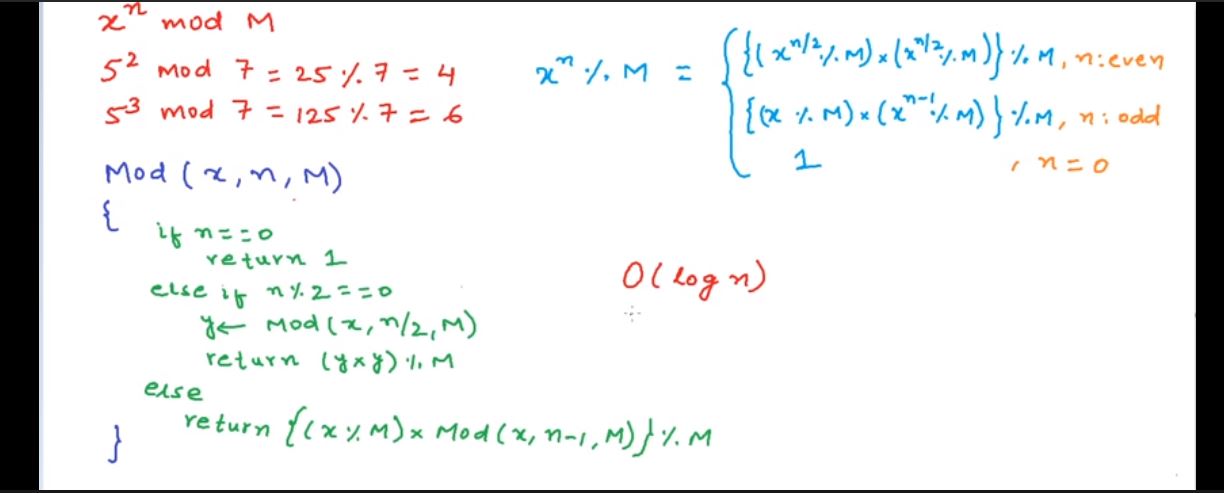 x^n mod M
5^2 mod 7 = 25 % 7 = 4
5^3 mod 7 = 125 % 7 = 6
x^n % M = { {(x^n/2 % M) × (x^n/2 % M)} % M, n: even
{(x % M) × (x^n-1 % M)} % M, n: odd
1 , n = 0
Mod (x, n, M)
{
if n == 0
return 1
else if n % 2 == 0
y ← Mod (x, n/2, M)
return (y × y) % M
else
return {(x % M) × Mod (x, n-1, M)} % M
}
O(log n)